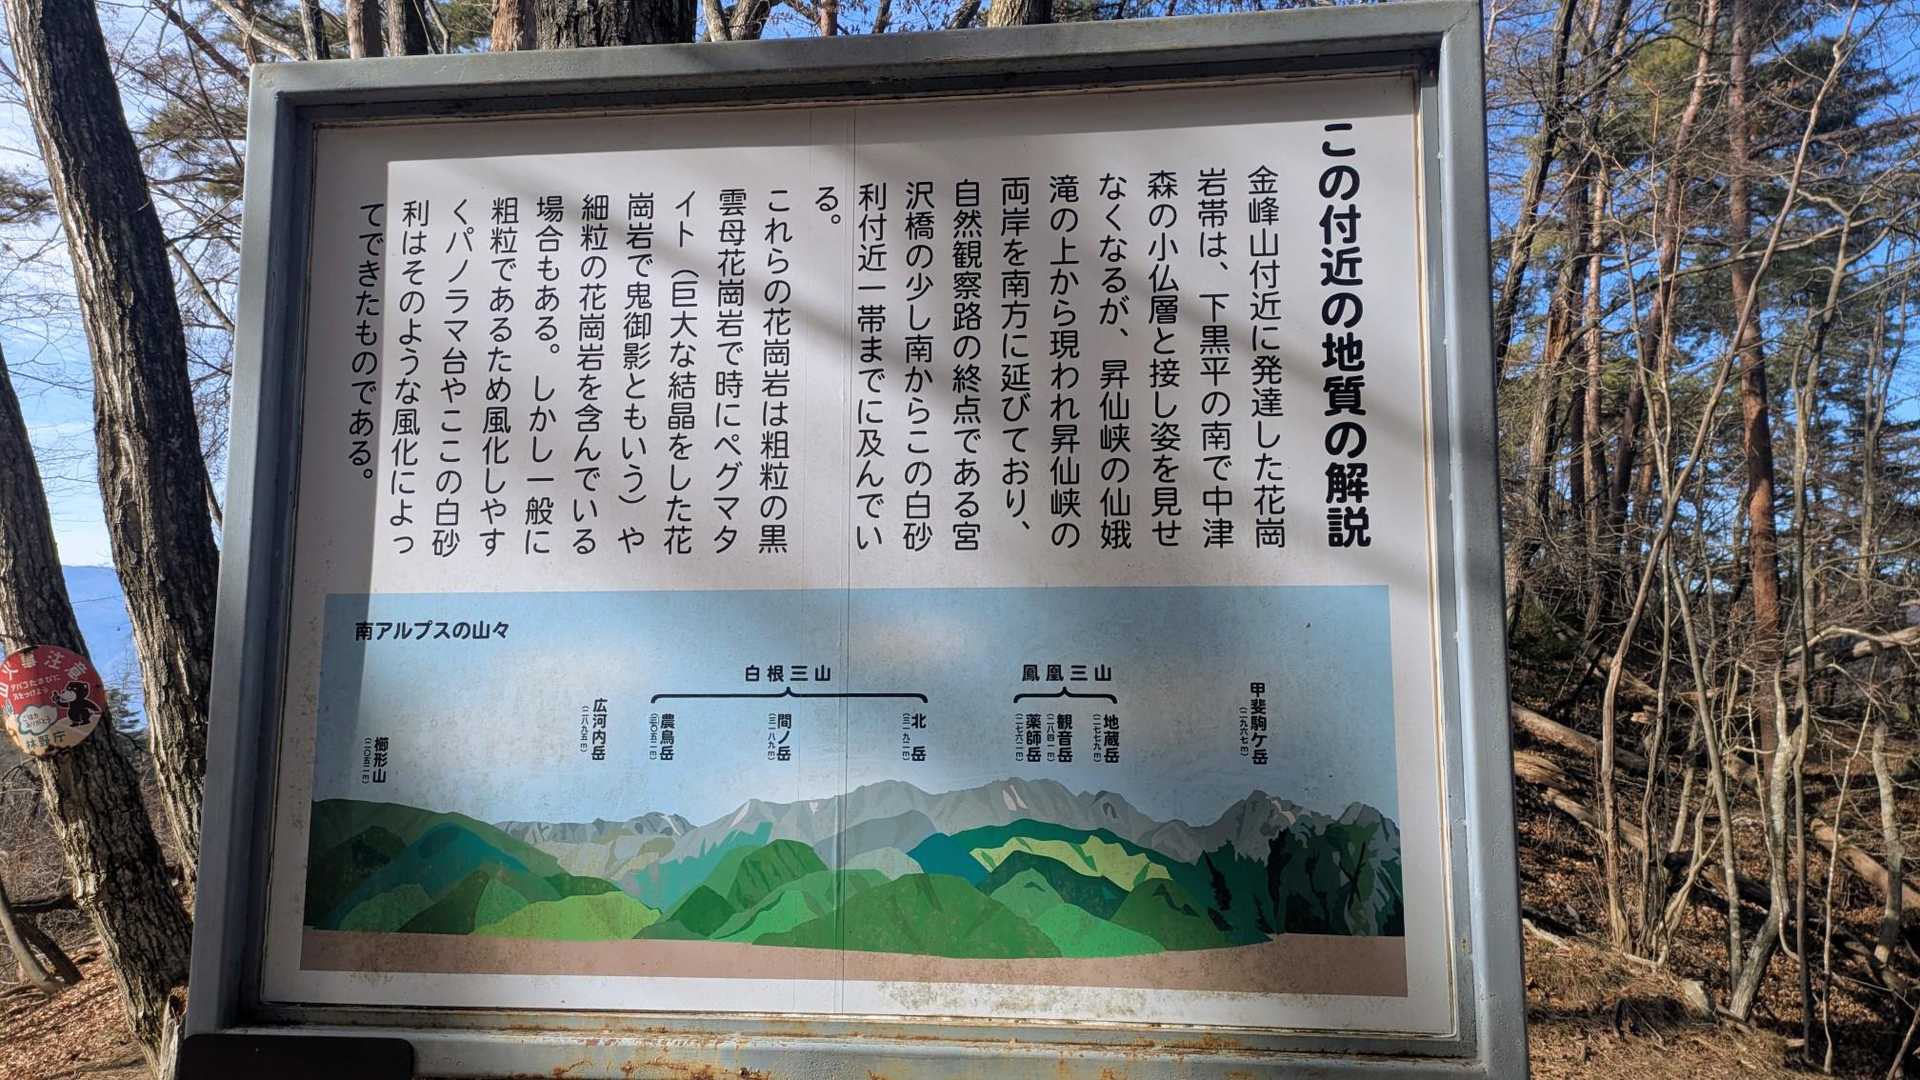 この付近の地質の解説
金峰山付近に発達した花崗
岩帯は、下黒平の南で中津
森の小仏層と接し姿を見せ
なくなるが、昇仙峡の仙娥
滝の上から現われ昇仙峡の
両岸を南方に延びており、
自然観察路の終点である宮
沢橋の少し南からこの白砂
利付近一帯までに及んでい
る。
これらの花崗岩は粗粒の黒
雲母花崗岩で時にペグマタ
イト（巨大な結晶をした花
崗岩で鬼御影ともいう）や
細粒の花崗岩を含んでいる
場合もある。しかし一般に
粗粒であるため風化しやす
くパノラマ台やここの白砂
利はそのような風化によっ
てできたものである。
南アルプスの山々
甲斐駒ケ岳
（二九六七m）
鳳凰三山
地蔵岳
観音岳
（二八四一m）
薬師岳
白根三山
北岳
（三一九二m）
間ノ岳
（三一八九m）
農鳥岳
広河内岳
（二八九五m）
櫛形山
（二〇五二m）
火事注意
林野庁